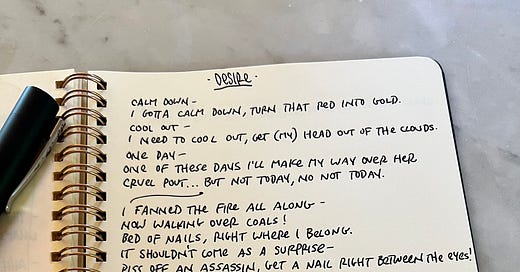 · DESIRE ·
CALM DOWN –
I GOTTA CALM DOWN, TURN THAT RED INTO GOLD.
COOL OUT –
I NEED TO COOL OUT, GET (MY) HEAD OUT OF THE CLOUDS.
ONE DAY –
ONE OF THESE DAYS I'LL MAKE MY WAY OVER HER
CRUEL POUT... BUT NOT TODAY, NO NOT TODAY.
I FANNED THE FIRE ALL ALONG –
NOW WALKING OVER COALS!
BED OF NAILS, RIGHT WHERE I BELONG.
IT SHOULDN'T COME AS A SURPRISE –
PISS OFF AN ASSASSIN, GET A NAIL RIGHT BETWEEN THE EYES!